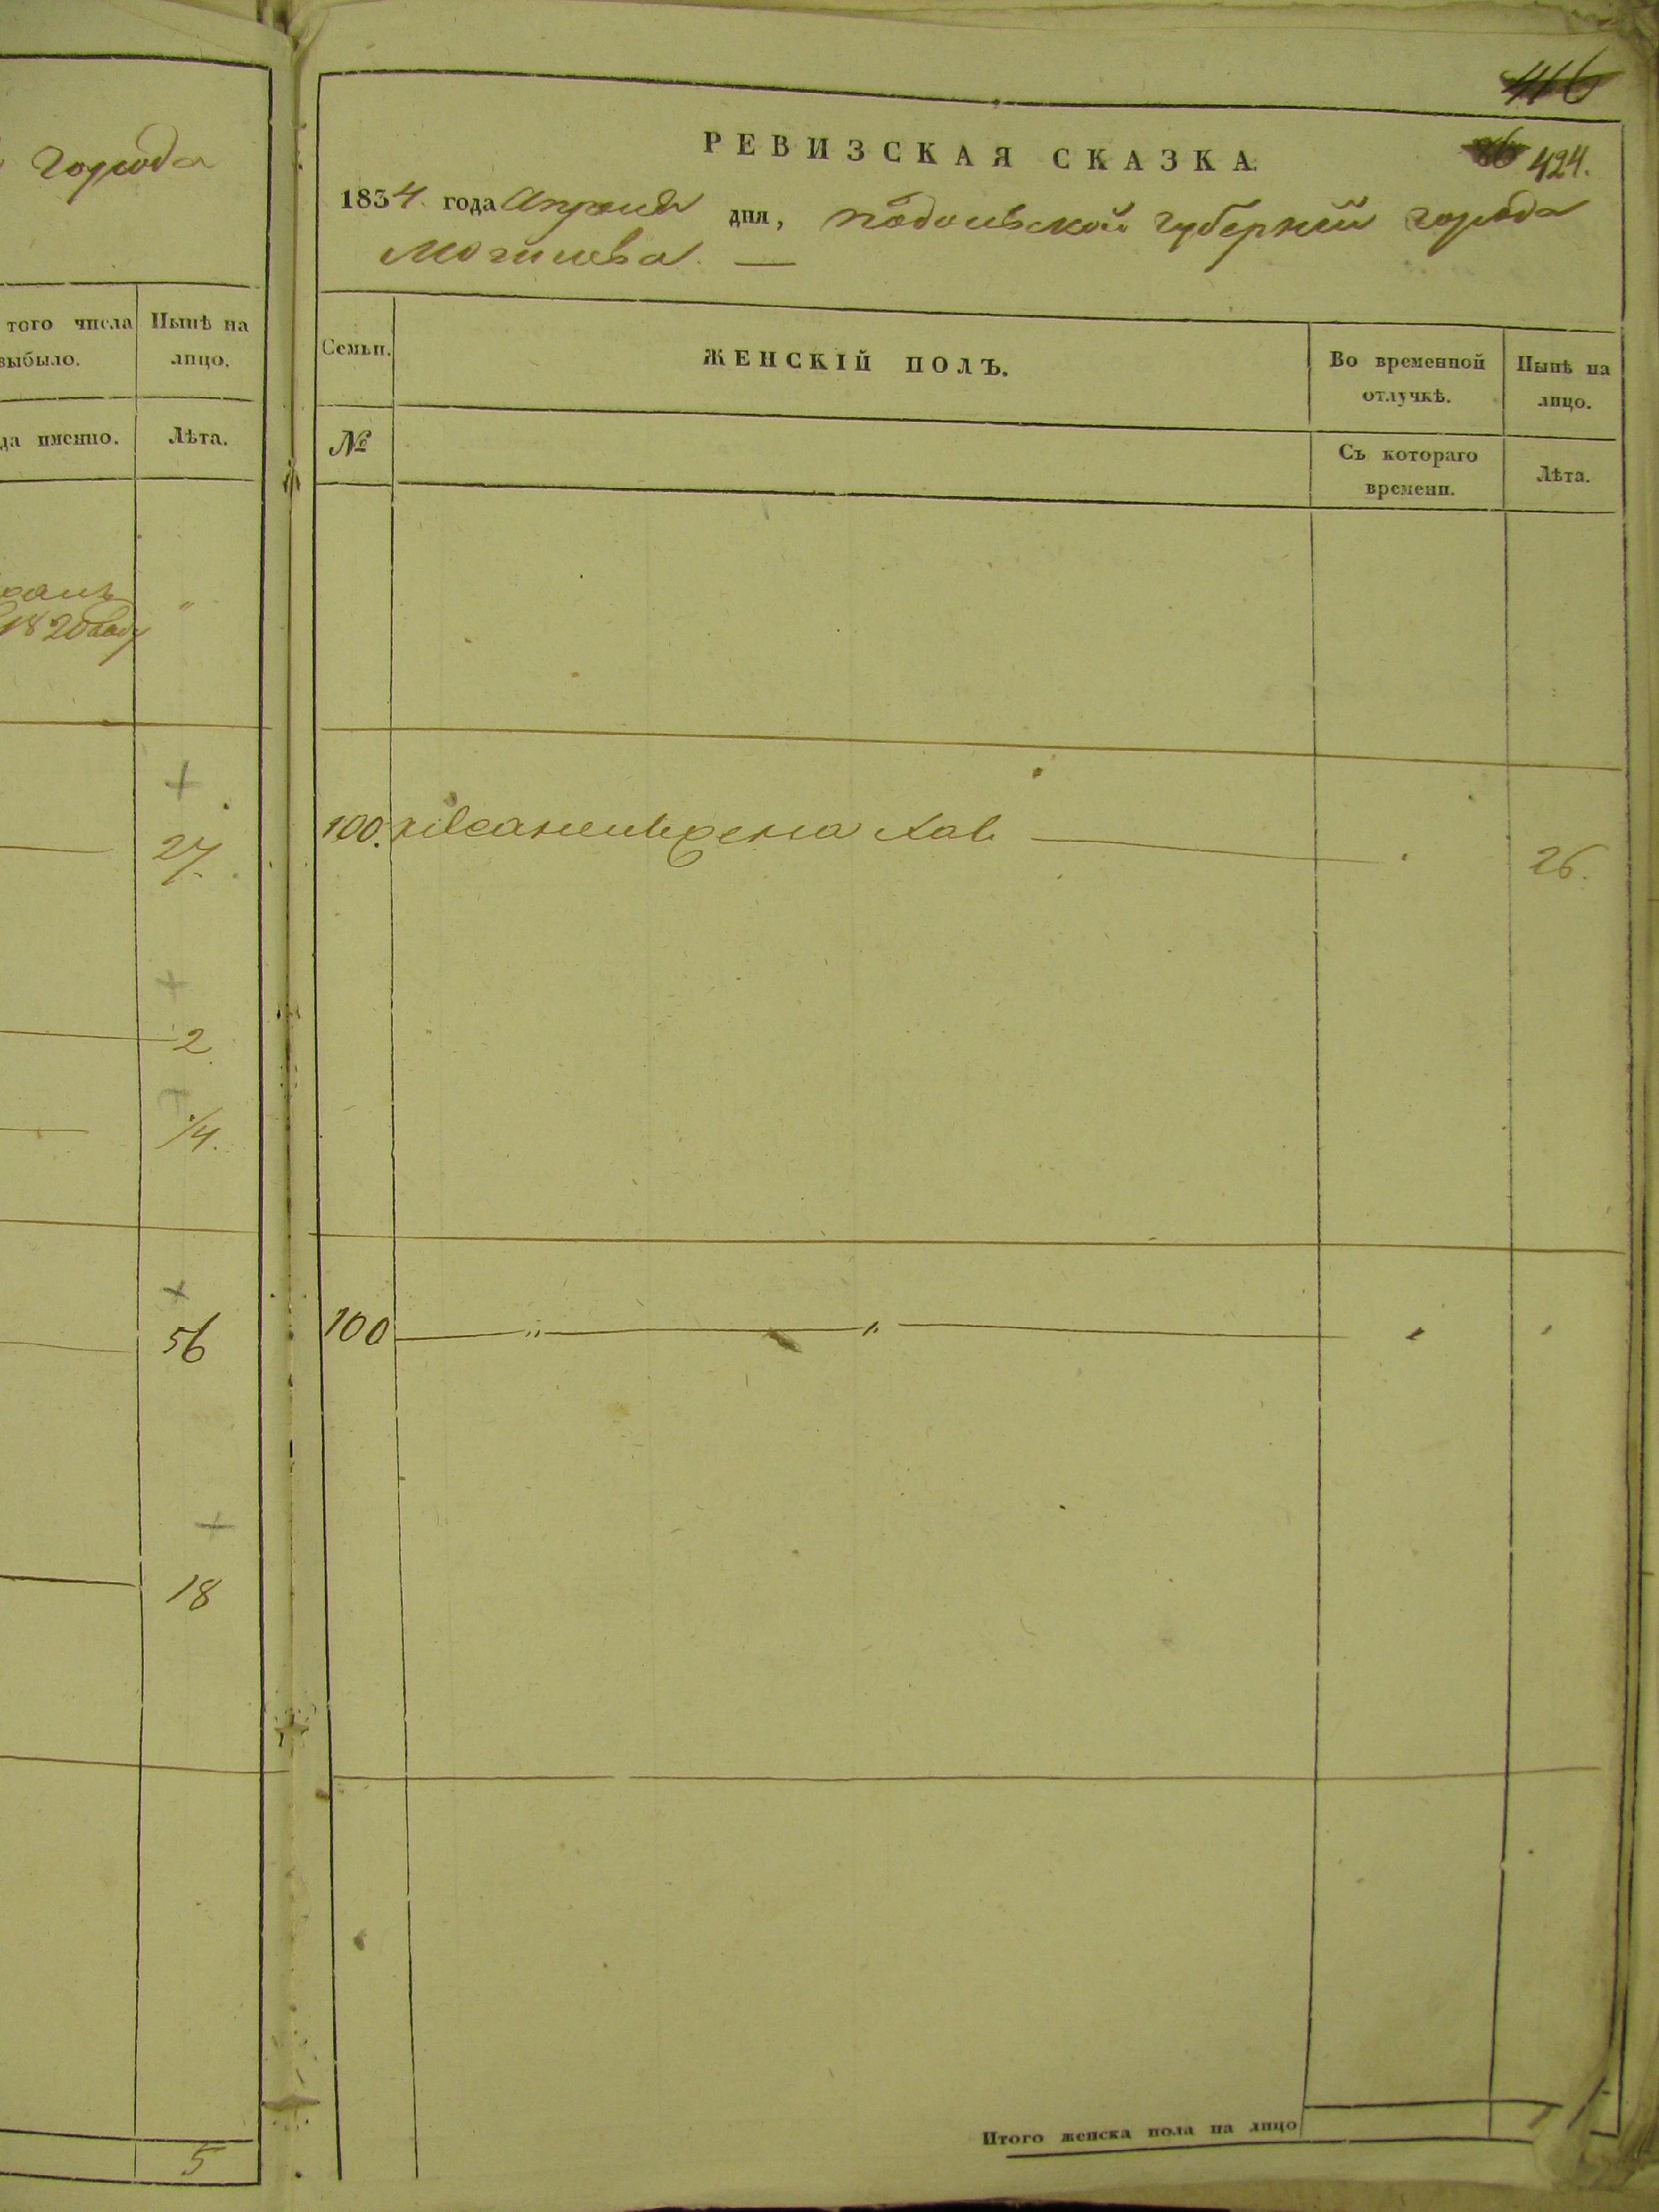 города
того числа
выбыло.
Нынѣ на
лицо.
да именно.
Лѣта.
1820 году
"
27.
2.
1/4.
56
18
5
416
РЕВИЗСКАЯ СКАЗКА.
86 424.
1834. года Апреля дня, Подольской губернии города
Могилева. —
Семьи.
ЖЕНСКІЙ ПОЛЪ.
Во временной
отлучкѣ.
Нынѣ на
лицо.
№
Съ котораго
времени.
Лѣта.
100. жена Хая 26.
100 " "
Итого женска пола на лицо 1